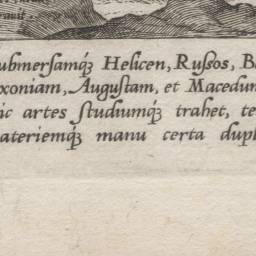 ubmersamq́ꝫ Helicen, Rußos, B
xoniam, Augustam, et Macedum
ic artes studiumq́ꝫ trahet, te
ateriemq́ꝫ manu certa dupl